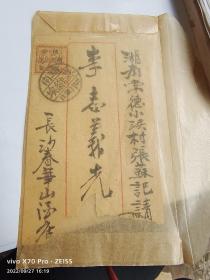 湖南常德小溪村張蘇記請
李志義先
長沙春華山
vivo X70 Pro · ZEISS
2022/09/27 16:19